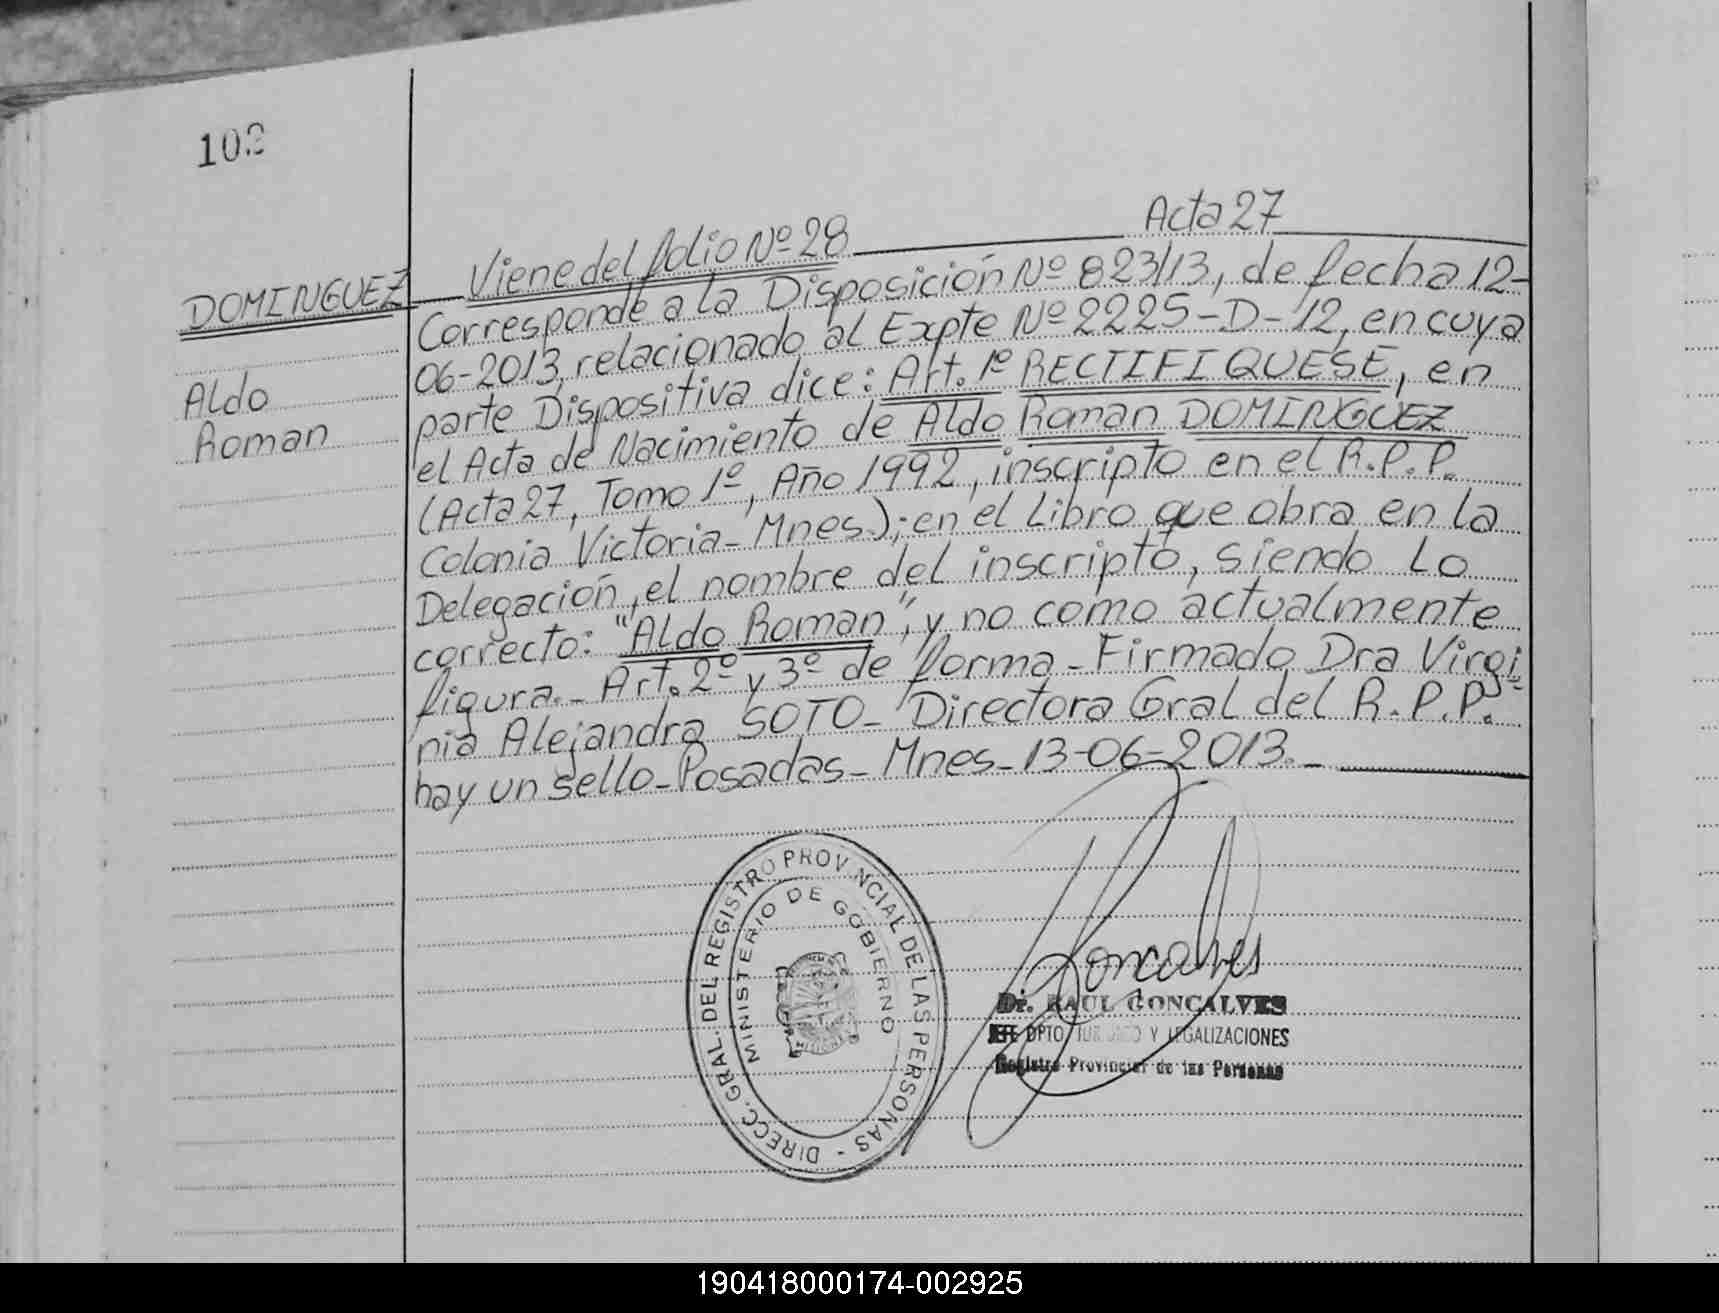 102
Acta 27
Viene del folio Nº 28
DOMINGUEZ
Aldo
Roman
Corresponde a la Disposición Nº 823/13, de fecha 12-
06-2013, relacionado al Expte Nº 2225-D-12, en cuya
parte Dispositiva dice: Art. 1º RECTIFIQUESE, en
el Acta de Nacimiento de Aldo Roman DOMINGUEZ
(Acta 27, Tomo 1º, Año 1992, inscripto en el R.P.P.
Colonia Victoria - Mnes.); en el Libro que obra en la
Delegación, el nombre del inscripto, siendo Lo
correcto: "Aldo Roman", y no como actualmente
figura.- Art. 2º y 3º de forma - Firmado Dra Virgi
nia Alejandra SOTO - Directora Gral del R.P.P.
hay un sello - Posadas - Mnes - 13-06-2013. -
DIRECC. GRAL. DEL REGISTRO PROVINCIAL DE LAS PERSONAS -
MINISTERIO DE GOBIERNO
Goncalves
Dr. RAUL GONCALVES
DPTO Y LEGALIZACIONES
Registro Provincial de las Personas
190418000174-002925